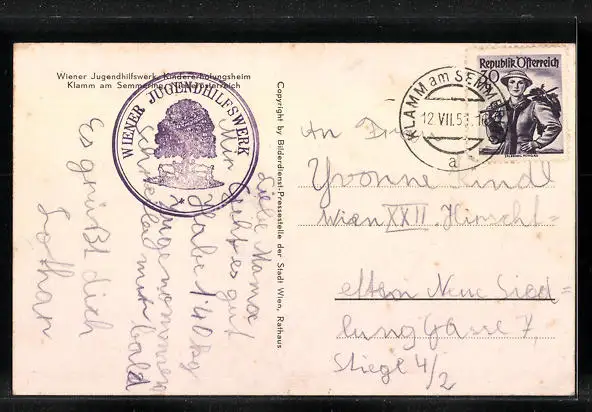 Wiener Jugendhilfswerk, Kindererholungsheim
Klamm am Semmering, Niederösterreich
WIENER JUGENDHILFSWERK
Liebe Mama
Mir geht es gut
Habe 1.40 kg
zugenommen
schreibe mir bald
Es grüßt dich
Lothar.
Copyright by Bilderdienst-Pressestelle der Stadt Wien, Rathaus
KLAMM am SEMMERING
12.VII.53
a
Republik Österreich
30
An
Yvonne
Wien XXII. Hirscht=
etten Neue Sied=
lung Gasse 7,
Stiege 4/2